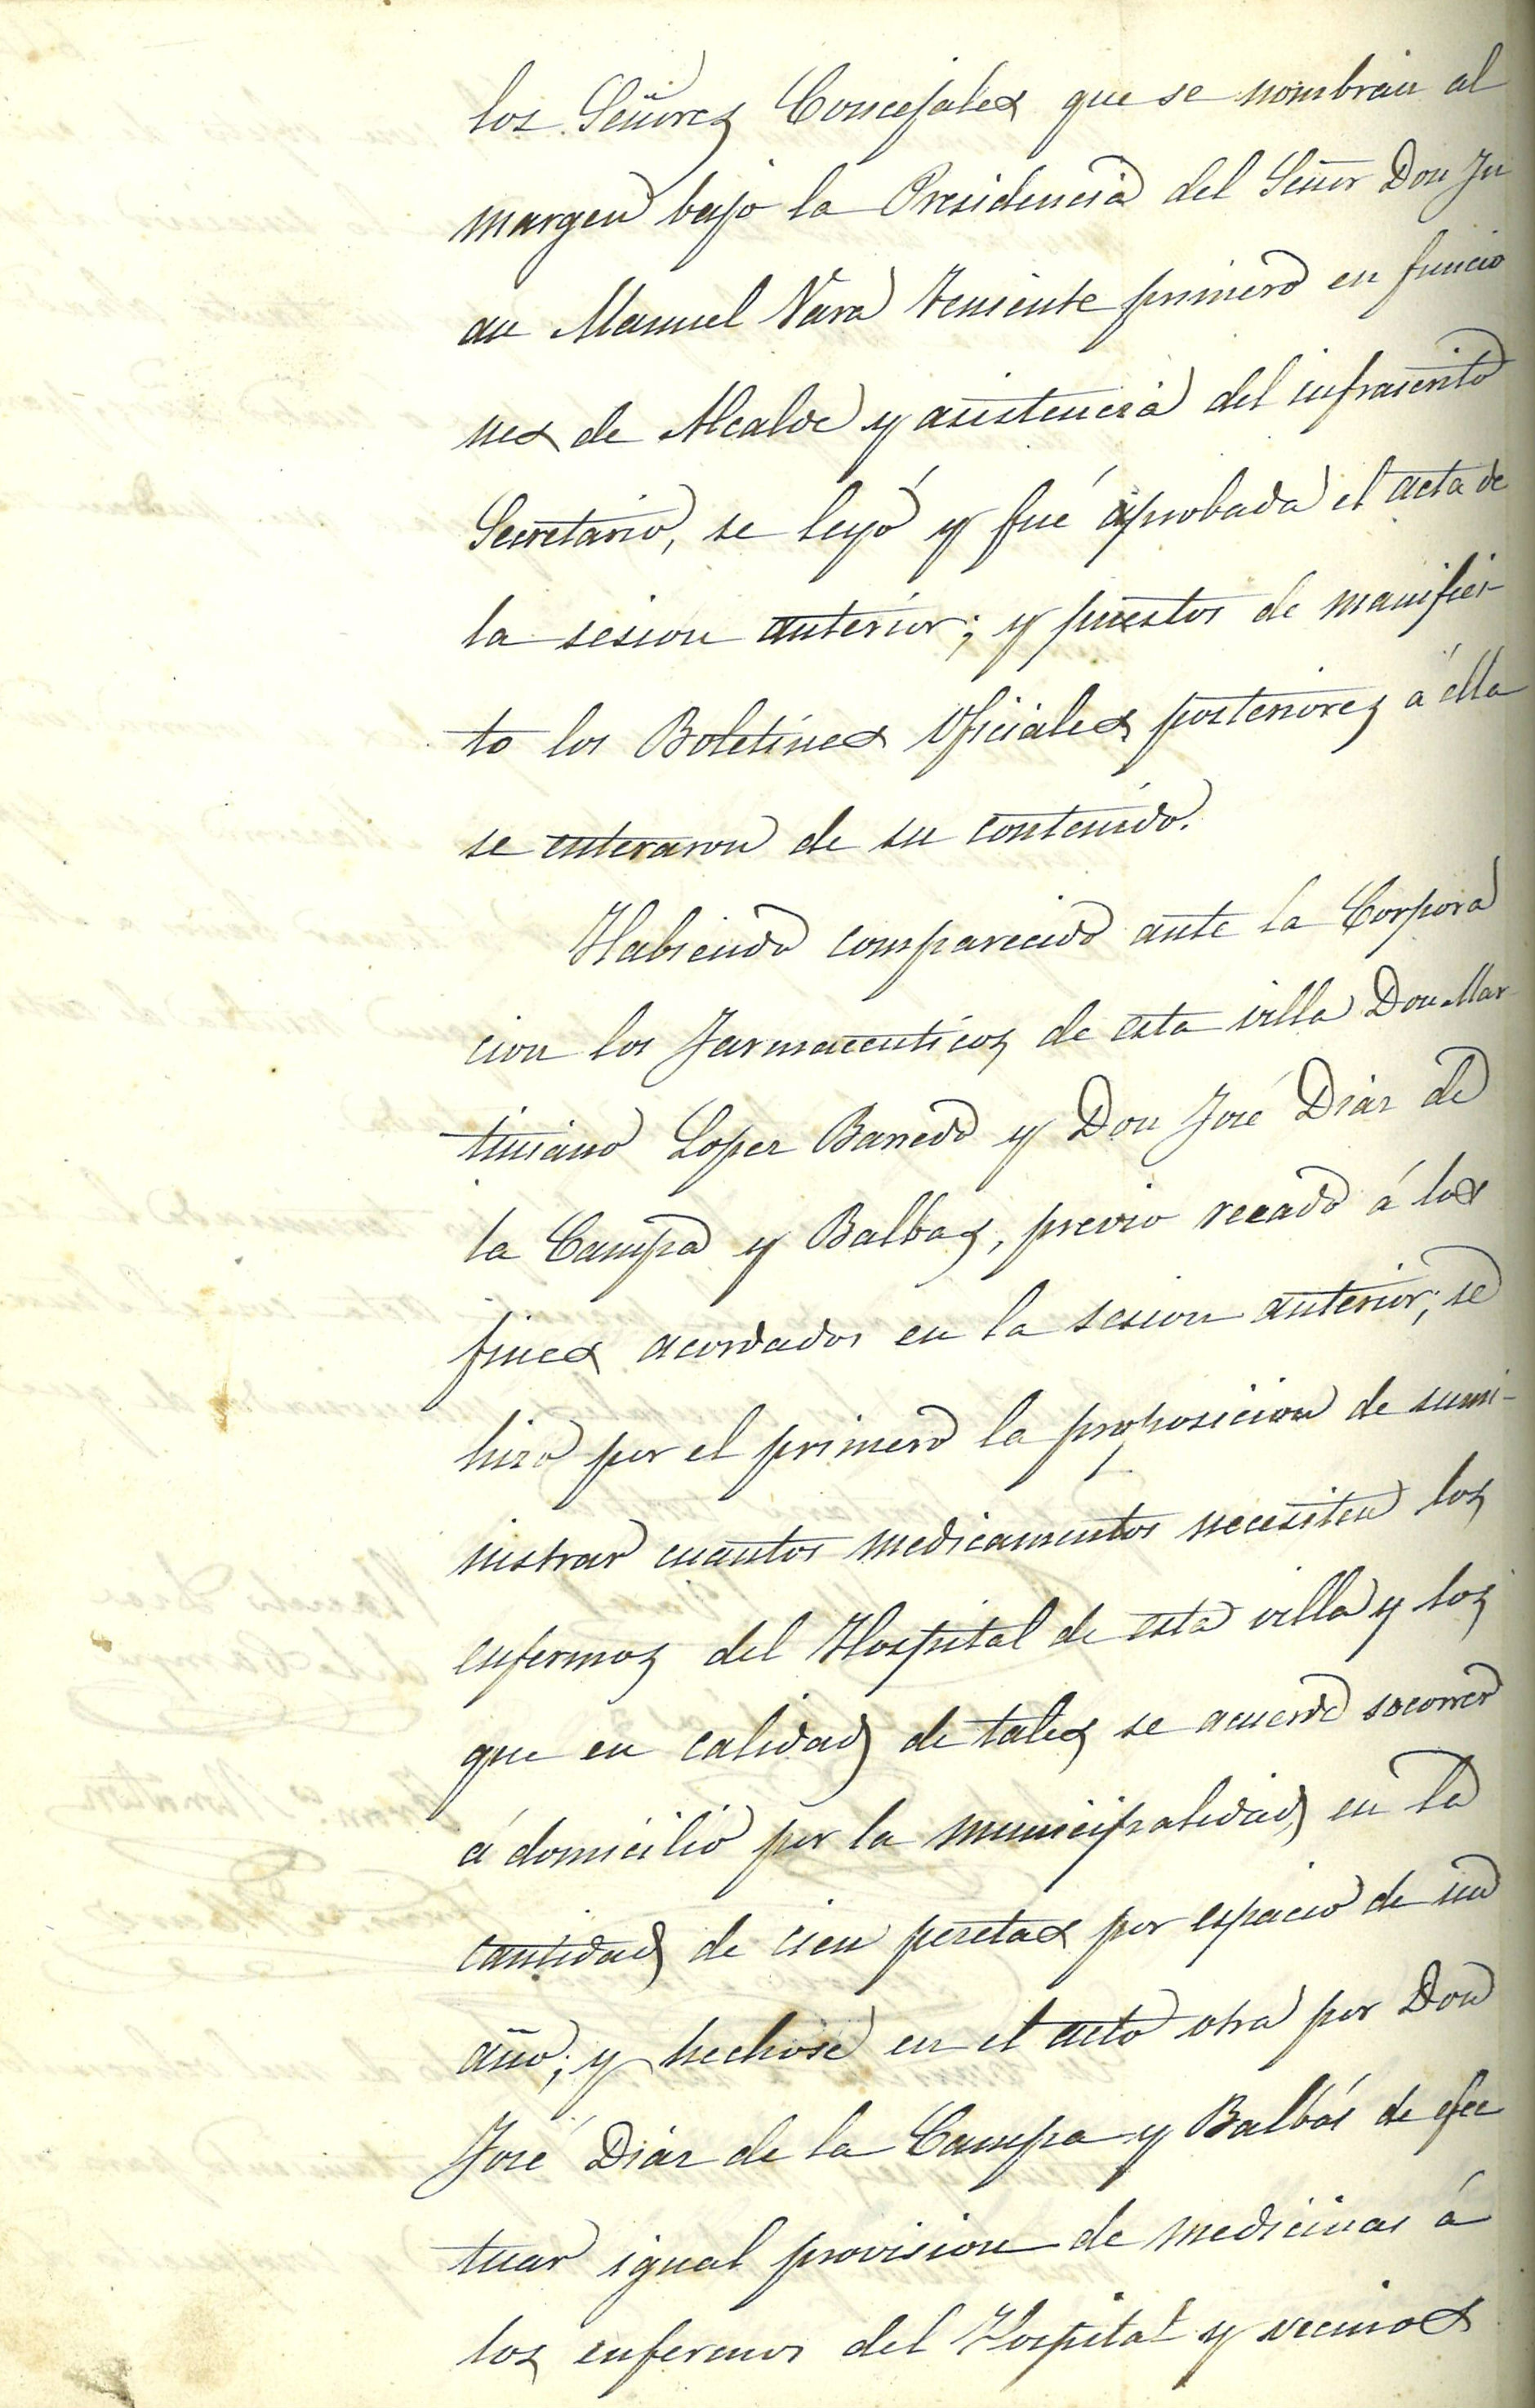 los Señores Concejales que se nombran al
margen bajo la Presidencia del Señor Don Ju
an Manuel Vara Teniente primero en funcio
nes de Alcalde y asistencia del infrascrito
Secretario, se leyó y fué aprobada el acta de
la sesion anterior; y puestos de manifies-
to los Boletines Oficiales posteriores á élla
se enteraron de su contenido.
Habiendo comparecido ante la Corpora
cion los Farmaceuticos de esta villa Don Mar
tiniano Lopez Barredo y Don José Diáz de
la Campa y Balbas, previo recado á los
fines acordados en la sesion anterior; se
hizo por el primero la proposicion de sumi-
nistrar cuantos medicamentos necesiten los
enfermos del Hospital de esta villa y los
que en calidad de tales se acuerde socorrer
á domicilio por la municipalidad en la
cantidad de cien pesetas por espacio de un
año; y hechose en el acto otra por Don
José Diáz de la Campa y Balbás de efec
tuar igual provision de medicinas á
los enfermos del Hospital y vecinos